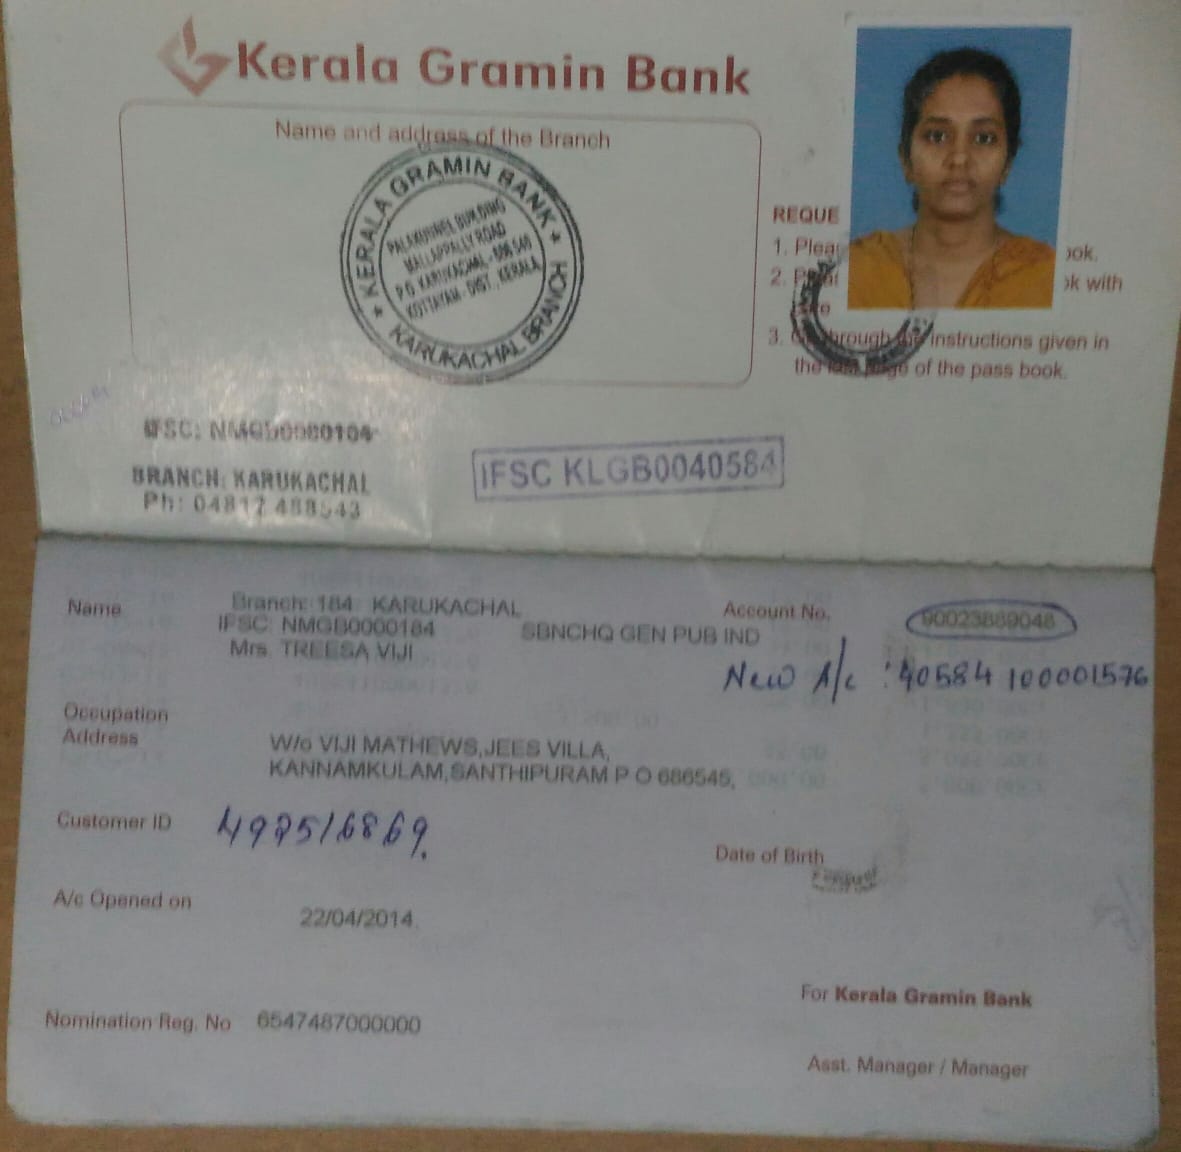 Kerala Gramin Bank
Name and address of the Branch
KERALA GRAMIN BANK
PALAKUNNEL BUILDING
MALLAPPALLY ROAD
P.O KARUKACHAL - 686 540
KOTTAYAM - DIST., KERALA
KARUKACHAL BRANCH
REQUE
1. Plea ok.
2. ok with
3. through instructions given in
the page of the pass book.
IFSC:
BRANCH: KARUKACHAL
Ph: 04817 488543
IFSC KLGB0040584
Name
Branch: 184 KARUKACHAL
Account No. 90023889048
IFSC: NMGB0000184 SBNCHQ GEN PUB IND
Mrs. TREESA VIJI
New A/c : 40584 100001576
Occupation
Address
W/o VIJI MATHEWS,JEES VILLA,
KANNAMKULAM,SANTHIPURAM P O 686545,
Customer ID
Date of Birth
A/c Opened on
22/04/2014.
For Kerala Gramin Bank
Nomination Reg. No 6547487000000
Asst. Manager / Manager